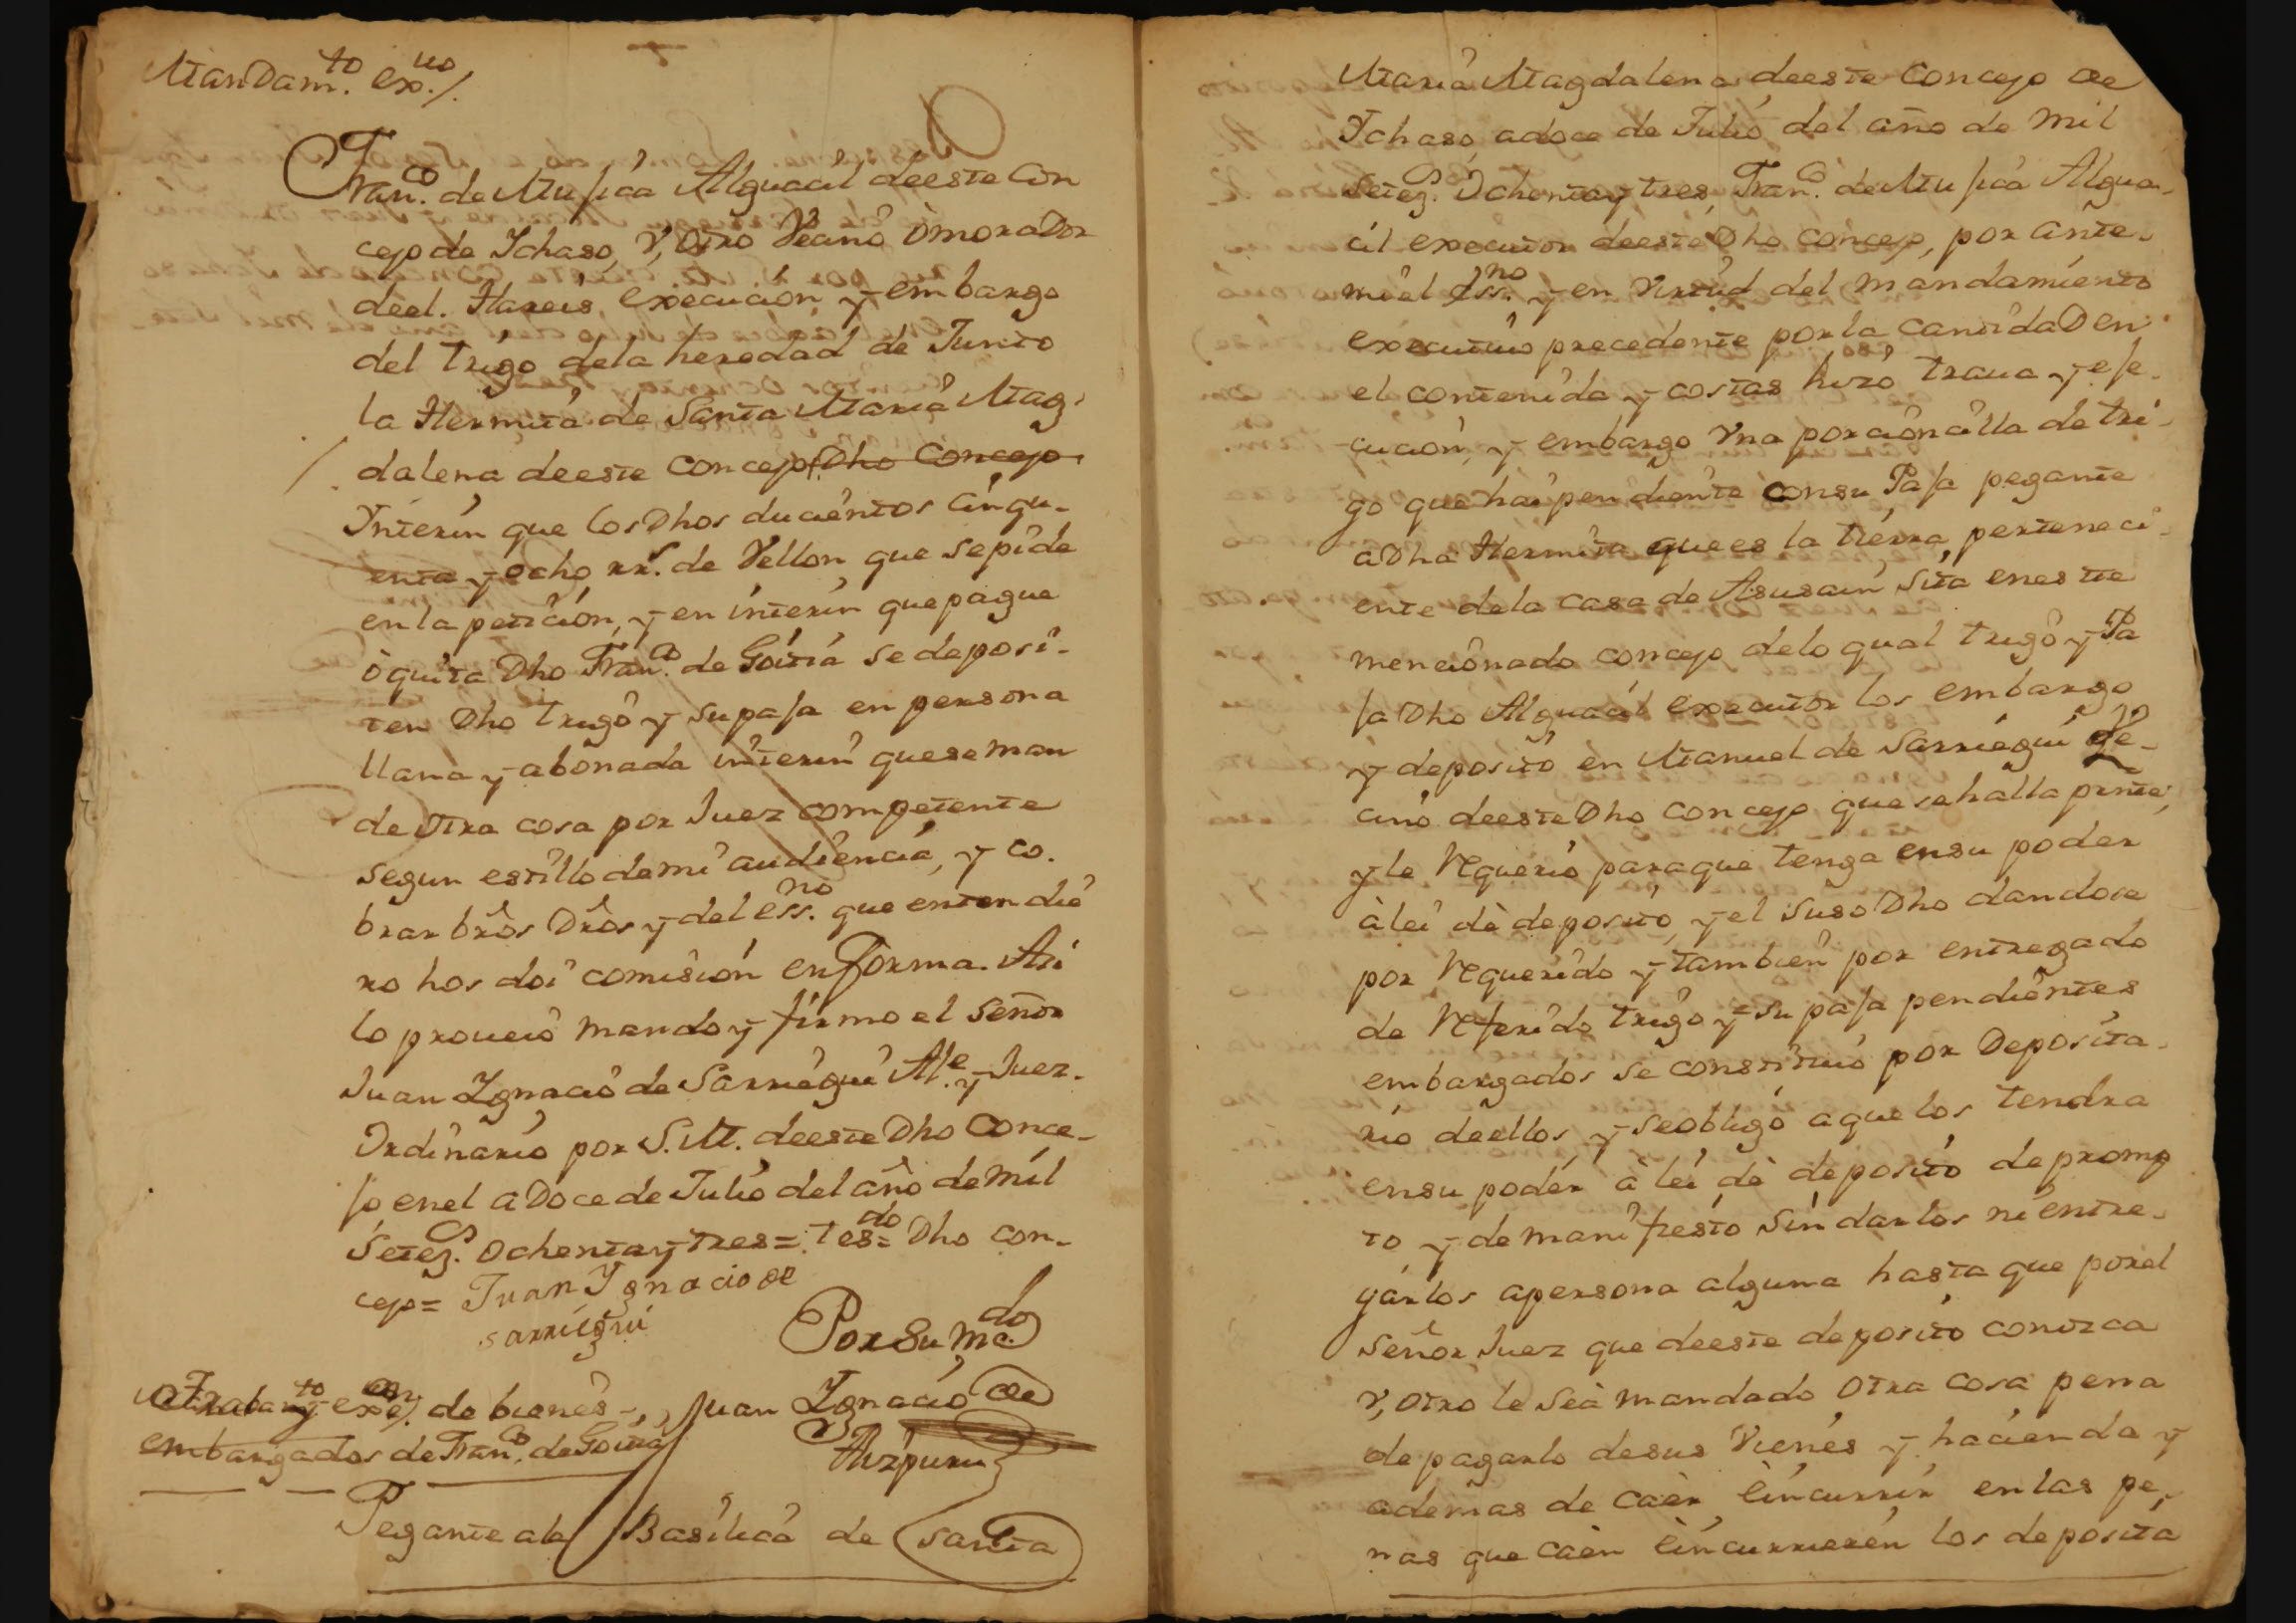 Mandam.to ex.uo /.
Fran.co de Mu sica Alguacil deeste Con
cejo de Ichaso, V, otro Vecino ò morador
deel. Hareis execucion, y embargo
del trigo dela heredad de Junto
la Hermita de Santa Maria Mag-
dalena deeste concejo Dho Concejo
Ynterin que los Dhos ducientos cinqu-
enta y ocho rr.s de Vellon que sepide
en la peticion, y en interin que pague
ò quita Dho Fran.co de Goitia se deposi-
ten Dho trigo y su paja en persona
llana y abonada interin quese man
de otra cosa por Juez competente
segun estillo de mi audiencia, y co-
brar bros Dros y del ess.no que entendie
ro hos doi comision en forma. Asi
lo proueio mando y firmo el Señor
Juan Ygnacio de Sarriegui Al.e y Juez
Ordinario por S.M. deeste Dho Conce-
jo en el a Doce de Julio del año de mil
Setez.s ochenta y tres = tes.do = Dho con-
cejo = Juan Ygnacio de
sarriegui
Por su m.do
Juan Ygnacio de
Aizpuru
exe.on de bienes
embargados de Fran.co de Goitia
Pegante ala Basilica de Santa
Maria Magdalena deeste Concejo de
Ychaso, adoce de Julio del año de mil
Setez.s Ochenta y tres, Fran.co de Mu sica Algua-
cil executor deeste Dho Concejo, por ante-
mi el Ess.no y en virtud del mandamiento
executiuo precedente por la cantidad en
el contenida y costas hizo traua y eje-
cucion, y embargo Vna porcioncilla de tri-
go que hai pendiente con su Paja pegante
a Dha Hermita que es la tierra perteneci-
ente dela casa de Asusain, sita en es te
mencionado concejo delo qual trigo y Pa
ja Dho Alguacil executor los embargo
y deposito en Manuel de Sarriegui Ve-
cino deeste Dho Concejo que se halla prnte,
y le Requerio paraque tenga ensu poder
à lei dè deposito, y el suso Dho dandose
por Requerido y tambien por entregado
de Referido trigo y su paja pendientes
embargados se constituió por Deposita-
rio deellos, y seobligó a que los tendra
ensu poder à lei dè deposito de promp
to y de manifiesto sin darlos ni entre-
garlos apersona alguna hasta que porel
Señor Juez que deeste deposito conozca
V, otro le sea mandado otra cosa pena
de pagarlo desus Vienes y hacienda y
ademas de caèr èincurrir en las pe-
nas que caèn èincurrieren los deposita